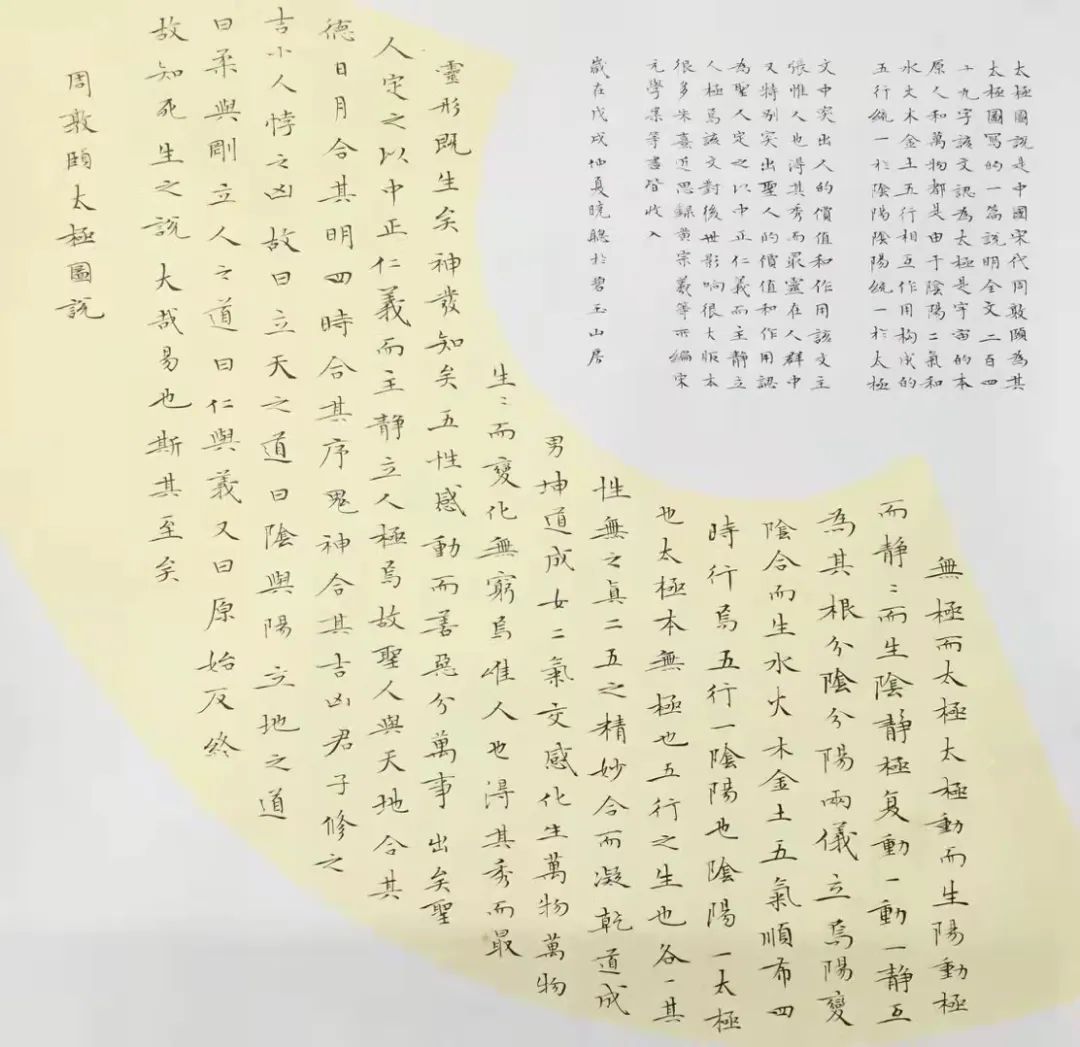 無極而太極太極動而生陽動極
而静〻而生陰静極复動一動一静互
為其根分陰分陽兩儀立焉陽變
陰合而生水火木金土五氣順布四
時行焉五行一陰陽也陰陽一太極
也太極本無極也五行之生也各一其
性無之真二五之精妙合而凝乾道成
男坤道成女二氣交感化生萬物萬物
生〻而變化無窮焉惟人也得其秀而最
靈形既生矣神發知矣五性感動而善惡分萬事出矣聖
人定之以中正仁義而主静立人極焉故聖人與天地合其
德日月合其明四時合其序鬼神合其吉凶君子修之
吉小人悖之凶故曰立天之道曰陰與陽立地之道
曰柔與剛立人之道曰仁與義又曰原始反終
故知死生之說大哉易也斯其至矣
周敦頤太極圖說
太極圖說是中國宋代周敦頤為其
太極圖寫的一篇說明全文二百四
十九字該文認為太極是宇宙的本
原人和萬物都是由于陰陽二氣和
水火木金土五行相互作用構成的
五行統一於陰陽陰陽統一於太極
文中突出人的價值和作用該文主
張惟人也得其秀而最靈在人群中
又特別突出聖人的價值和作用認
為聖人定之以中正仁義而主静立
人極焉該文對後世影响很大版本
很多朱熹近思録黄宗羲等所編宋
元學案等書皆收入
歲在戊戌仲夏曉聰於碧玉山居